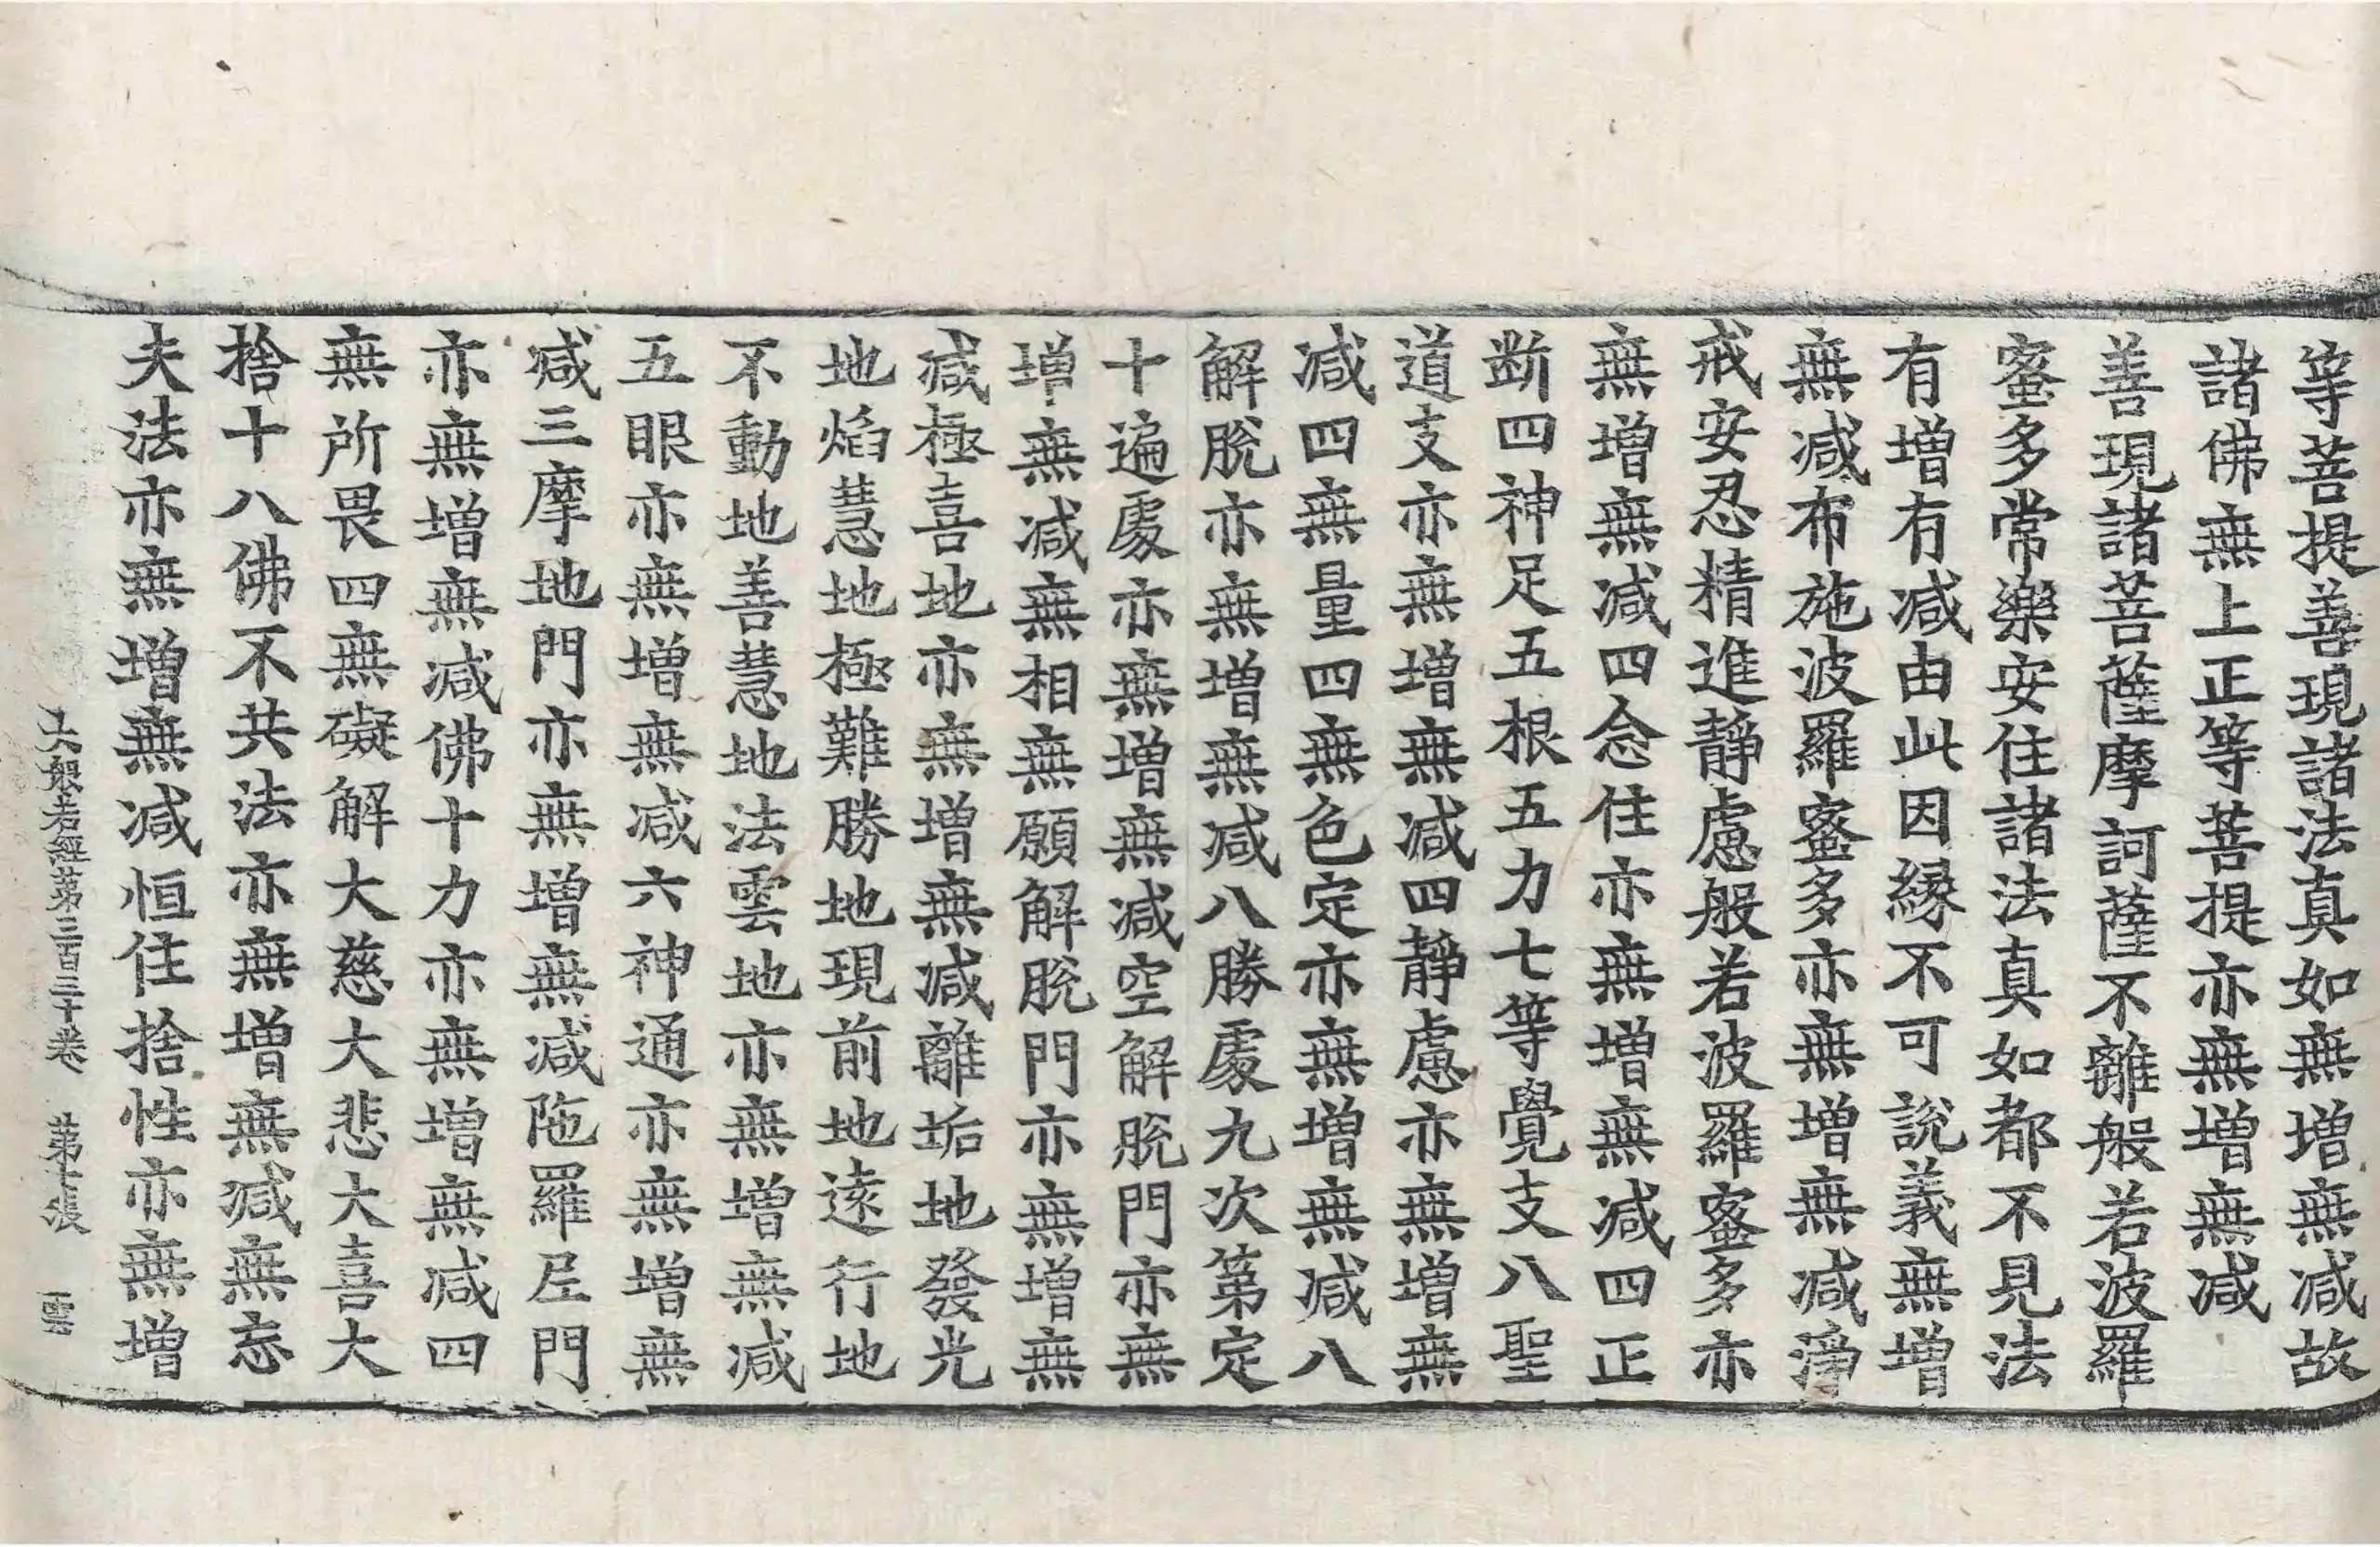 等菩提善現諸法真如無增無减故
諸佛無上正等菩提亦無增無减
善現諸菩薩摩訶薩不離般若波羅
蜜多常樂安住諸法真如都不見法
有增有减由此因縁不可說義無增
無减布施波羅蜜多亦無增無减淨
戒安忍精進靜慮般若波羅蜜多亦
無增無减四念住亦無增無减四正
断四神足五根五力七等覺支八聖
道支亦無增無减四靜慮亦無增無
减四無量四無色定亦無增無减八
解脫亦無增無减八勝處九次第定
十遍處亦無增無减空解脫門亦無
增無减無相無願解脫門亦無增無
减極喜地亦無增無减離垢地發光
地焰慧地極難勝地現前地遠行地
不動地善慧地法雲地亦無增無减
五眼亦無增無减六神通亦無增無
减三摩地門亦無增無减陁羅尼門
亦無增無减佛十力亦無增無减四
無所畏四無礙解大慈大悲大喜大
捨十八佛不共法亦無增無减無忘
失法亦無增無减恒住捨性亦無增
大般若經第三百三十卷 第十張 雲